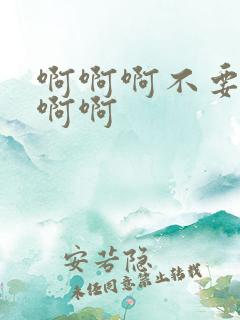 啊啊啊不要
啊啊
安若隐
未经同意禁止转载